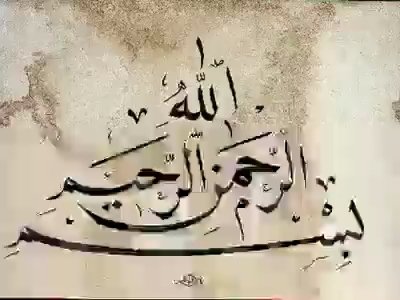 بِسْمِ
اللّٰهِ
الرَّحْمٰنِ الرَّحِيْمِ